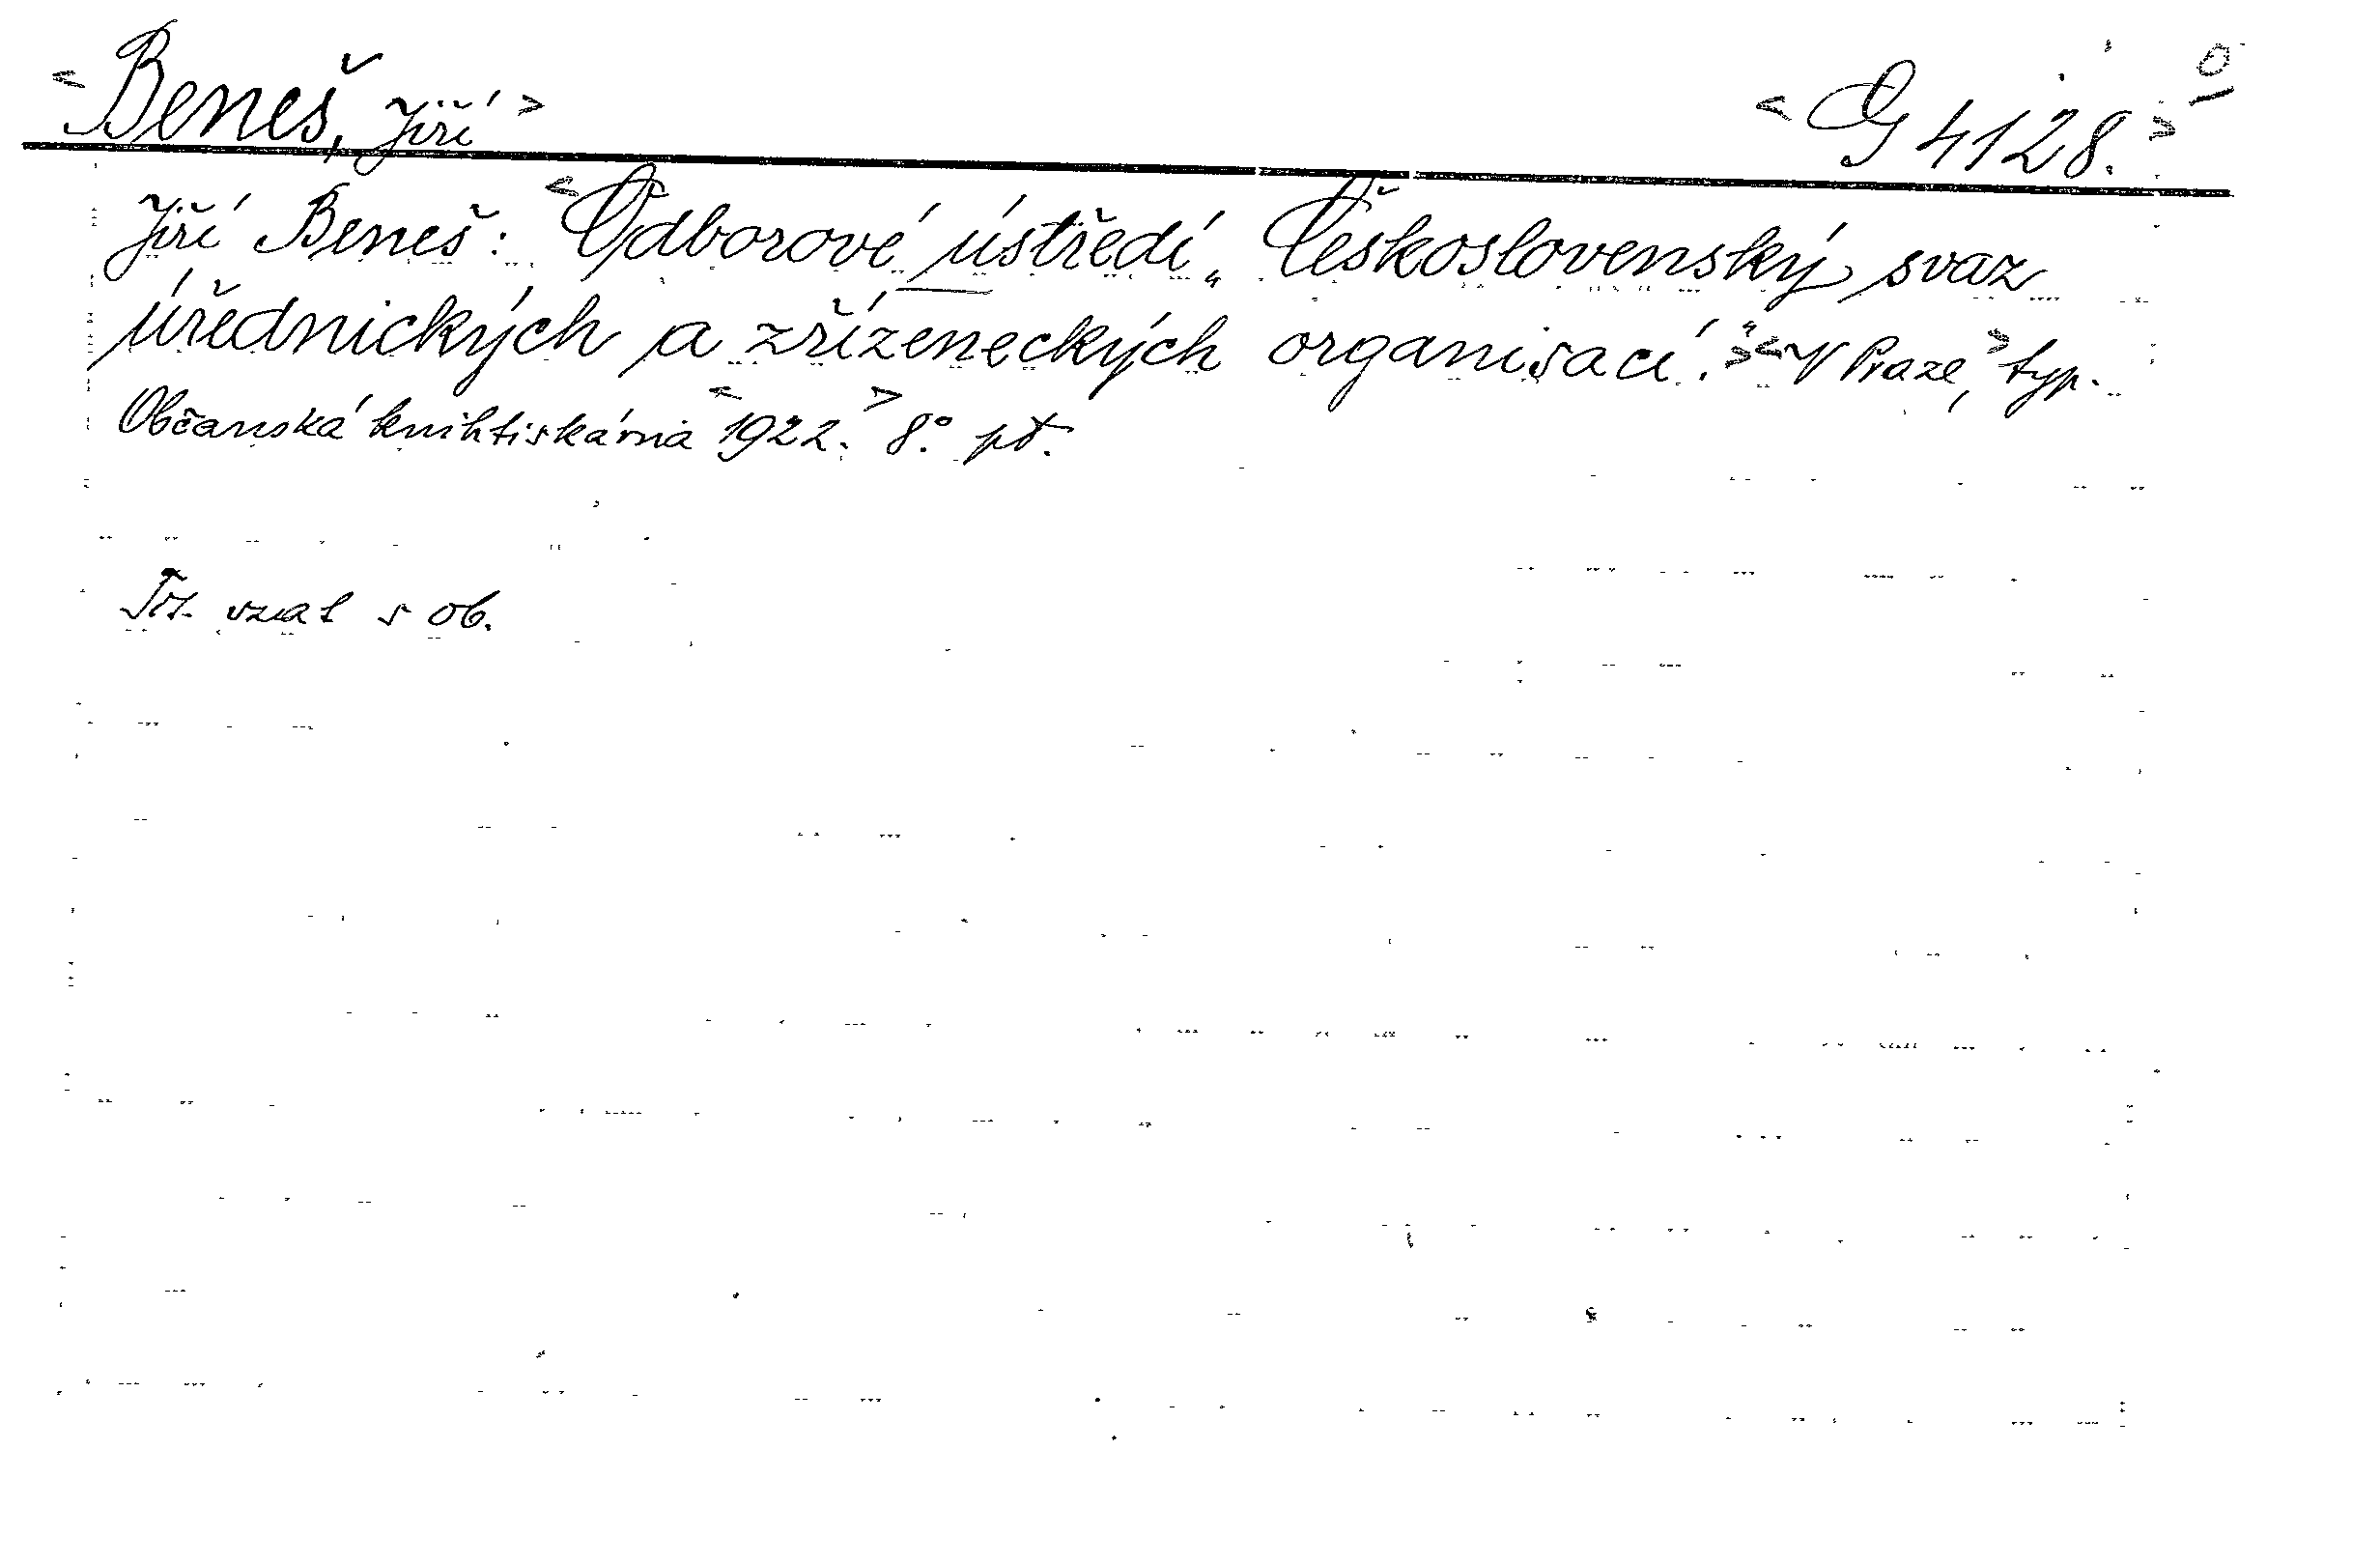 <Beneš, Jiří> <G 4128.>
Jiří Beneš: <Odborové ústředí „Československý svaz
úřednických a zřízeneckých organisací.“> <V Praze,> typ.
Občanská knihtiskárna <1922.> 8°. pť.
Tit. vzat s ob.